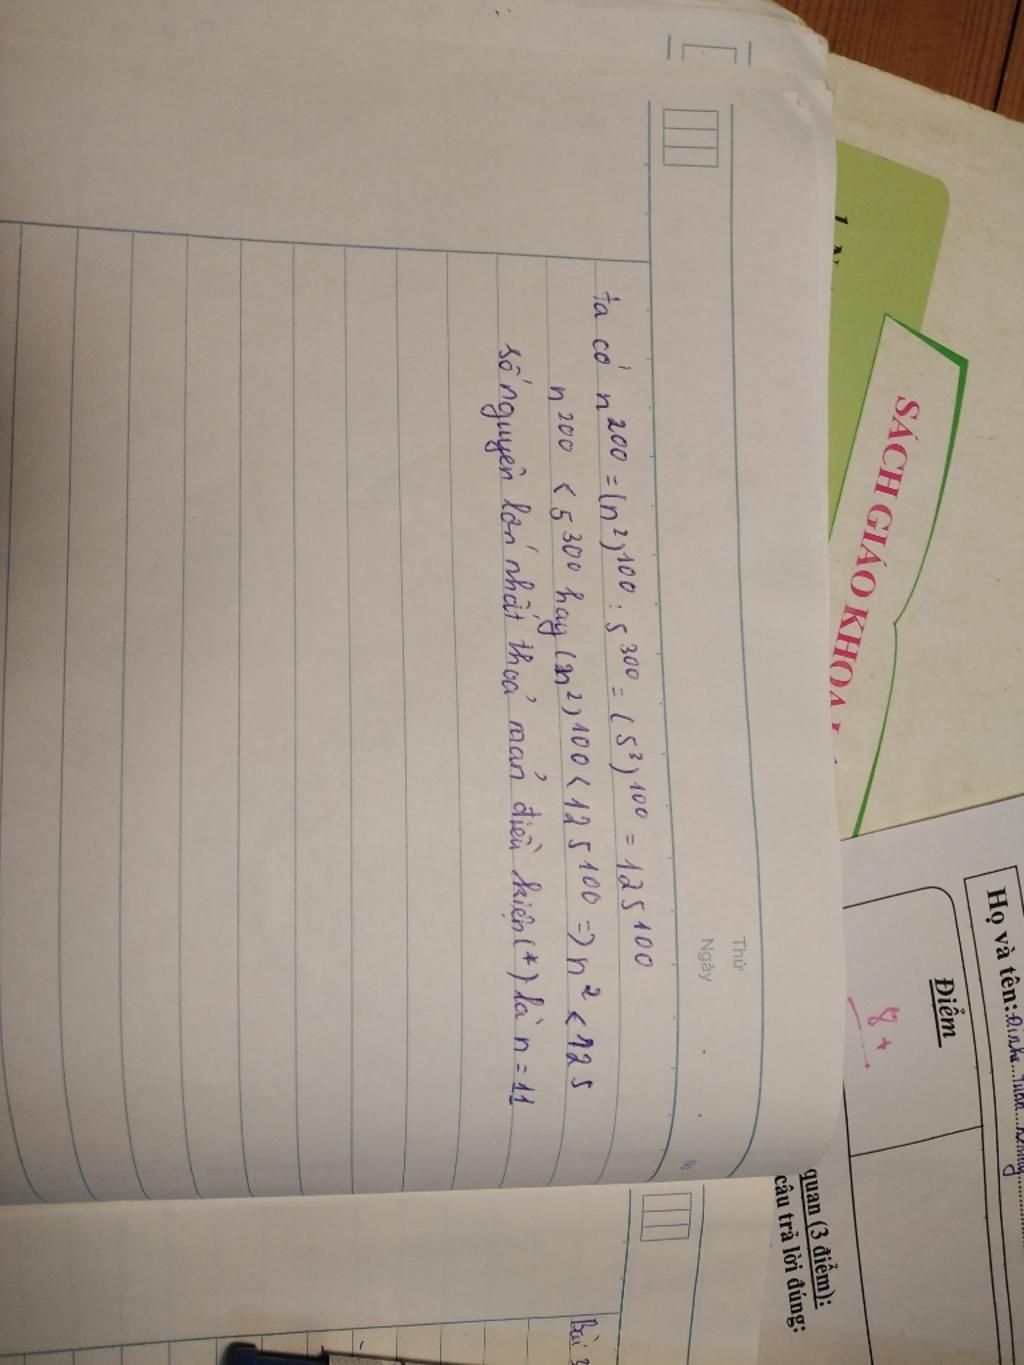 Thứ
Ngày
ta có n²⁰⁰ = (n²)¹⁰⁰ : 5³⁰⁰ = (5³)¹⁰⁰ = 125¹⁰⁰
n²⁰⁰ < 5³⁰⁰ hay (n²)¹⁰⁰ < 125¹⁰⁰ => n² < 125
số nguyên lớn nhất thoả mãn điều kiện (*) là n = 11
SÁCH GIÁO KHOA
Họ và tên:
Điểm
8+
quan (3 điểm):
câu trả lời đúng:
Bài 3